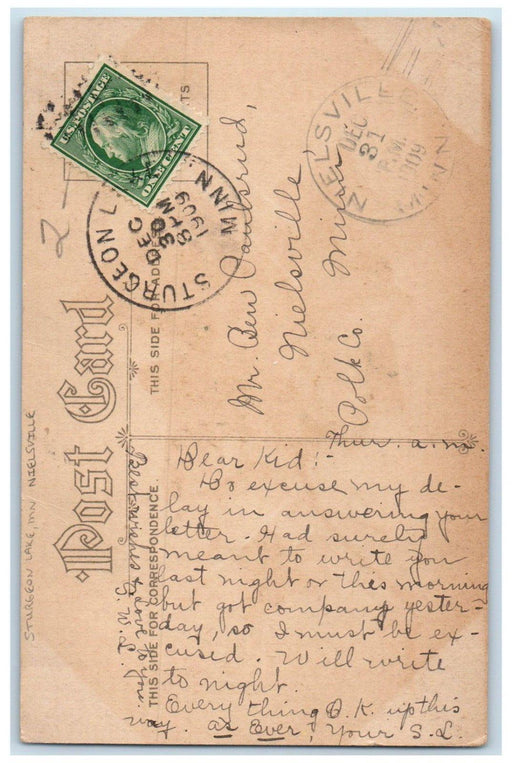 U.S. POSTAGE
ONE CENT
STURGEON L
DEC
30
8 AM
1909
MINN
NIELSVILLE
DEC
31
P.M.
1909
MINN
2-
Post Card
THIS SIDE FOR ADDRESS
THIS SIDE FOR CORRESPONDENCE.
STURGEON LAKE, MN NIELSVILLE
Mr. Ben Paulsrud,
Nielsville
Polk Co. Minn
Thur. a.m.
Dear Kid:-
Do excuse my de-
lay in answering your
letter. Had surely
meant to write you
last night or this morning
but got company yester-
day, so I must be ex-
cused. Will write
to night.
Every thing O.K. up this
way. As Ever, Your S.L.
Best wishes & love to you.